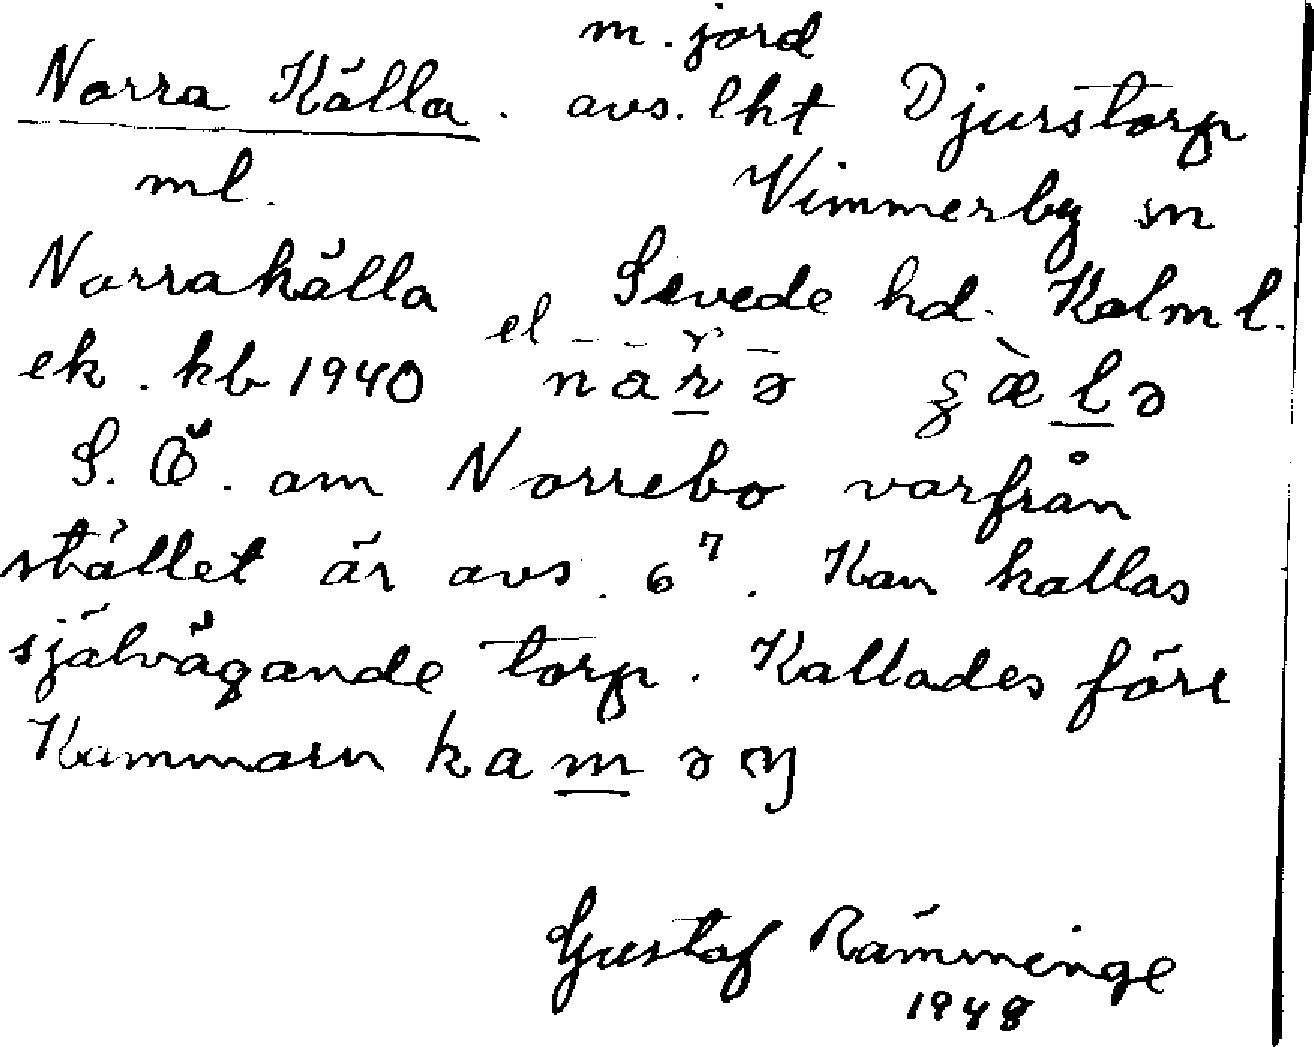 m. jord
Norra Källa. avs. lht Djurstorp
ml. Vimmerby sn
Norrakälla Sevede hd. Kalm l.
ek. kb 1940 el – – r –
narə ʂæ̀lə
S. Ö. om Norrebo varfrån
stället är avs. 6⁷. Kan kallas
självägande torp. Kallades före
Kammarn kaməɳ
Gustaf Rämminge
1948